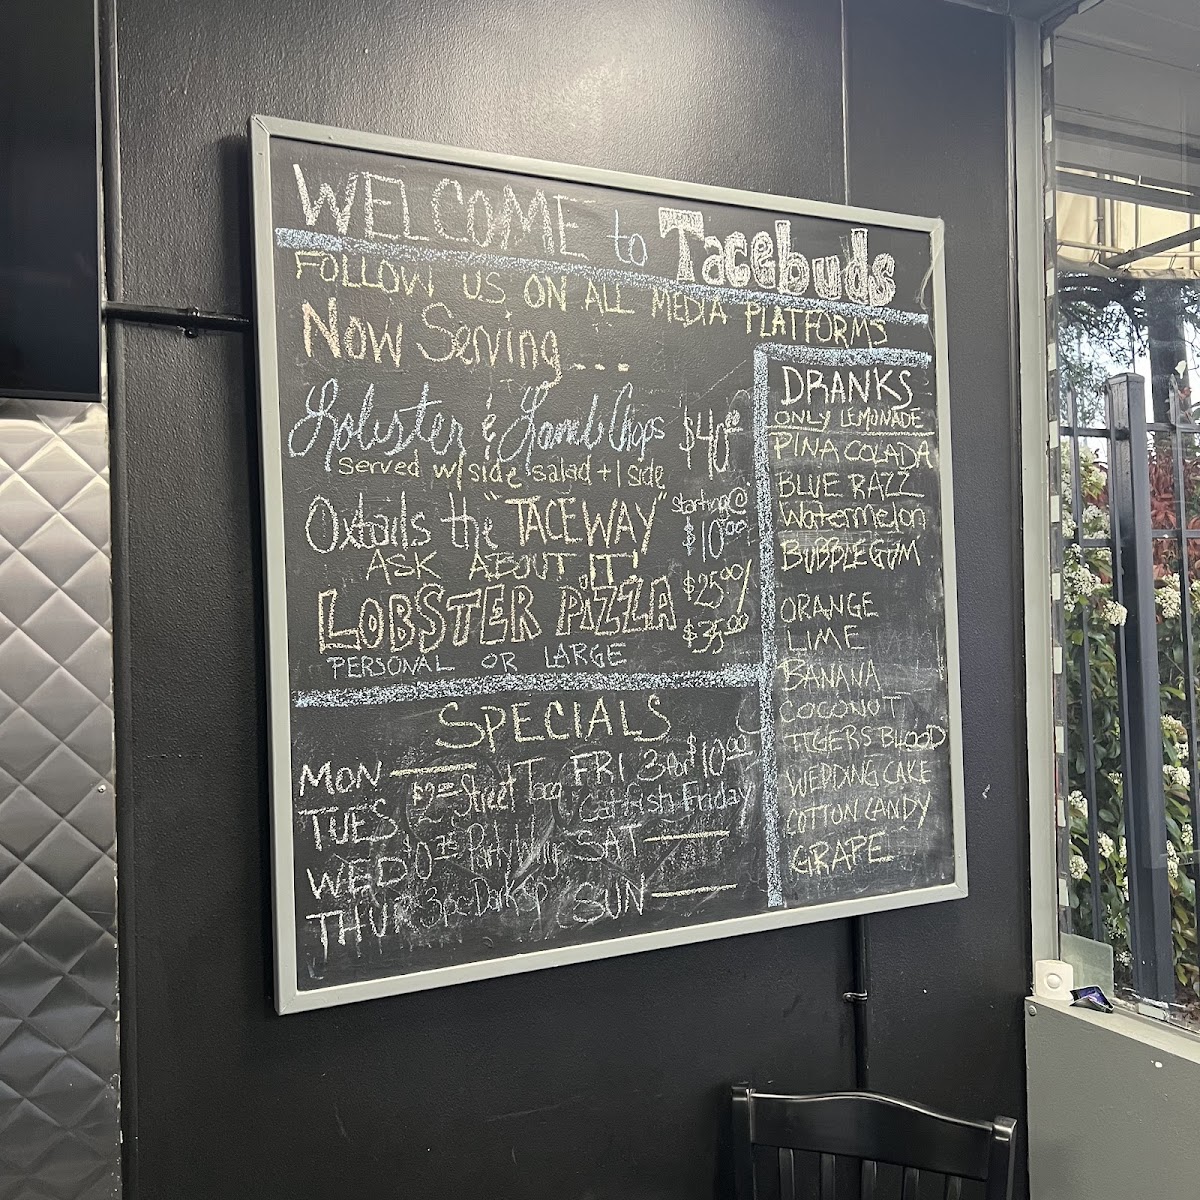 WELCOME to Tacebuds
FOLLOW US ON ALL MEDIA PLATFORMS
NOW Serving...
Lobster & Lamb Chops $40.00
Served w/side salad + 1 side
Oxtails the "TACEWAY" starting@ $10.00
ASK ABOUT IT!
LOBSTER PIZZA $25.00/ $35.00
PERSONAL OR LARGE
SPECIALS
MON
TUES $2 Street Taco
WED $0.75 Party Wing
THUR 3pc
FRI 3 for $10.00
Catfish Friday
SAT
SUN
DRANKS
ONLY LEMONADE
PINA COLADA
BLUE RAZZ
Watermelon
BUBBLEGUM
ORANGE
LIME
BANANA
COCONUT
TIGERS BLOOD
WEDDING CAKE
COTTON CANDY
GRAPE